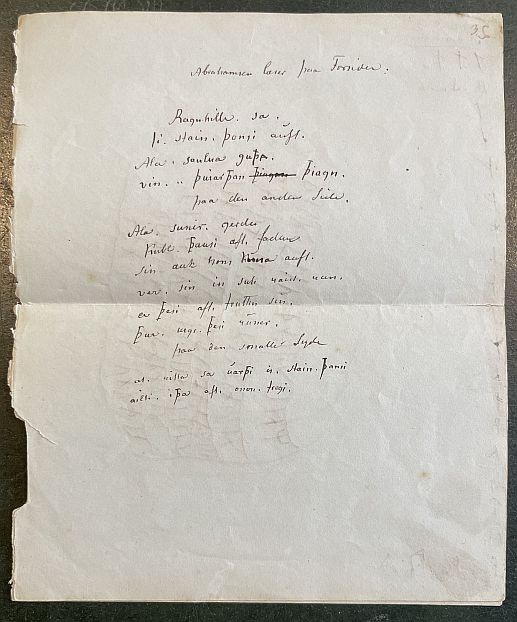 Abrahamsen læser paa Forsiden:
Raguhiltr. sa.
ti. stain. þonsi auft.
Ala. soulua guþa.
vin. .. þurarþan þiagn.
paa den anden Side.
Ala. sunir. gerdu
Kubl. þausi aft. fadur
sin auk hons kuna auft.
ver. sin in suti raist. run.
aʀ þasi aft. truttin sin.
þur. uigi. þasi runar.
paa den smalle Syde
at. rita sa uarþi is. stain. þansi
ailti. iþa aft. onon. tragi.